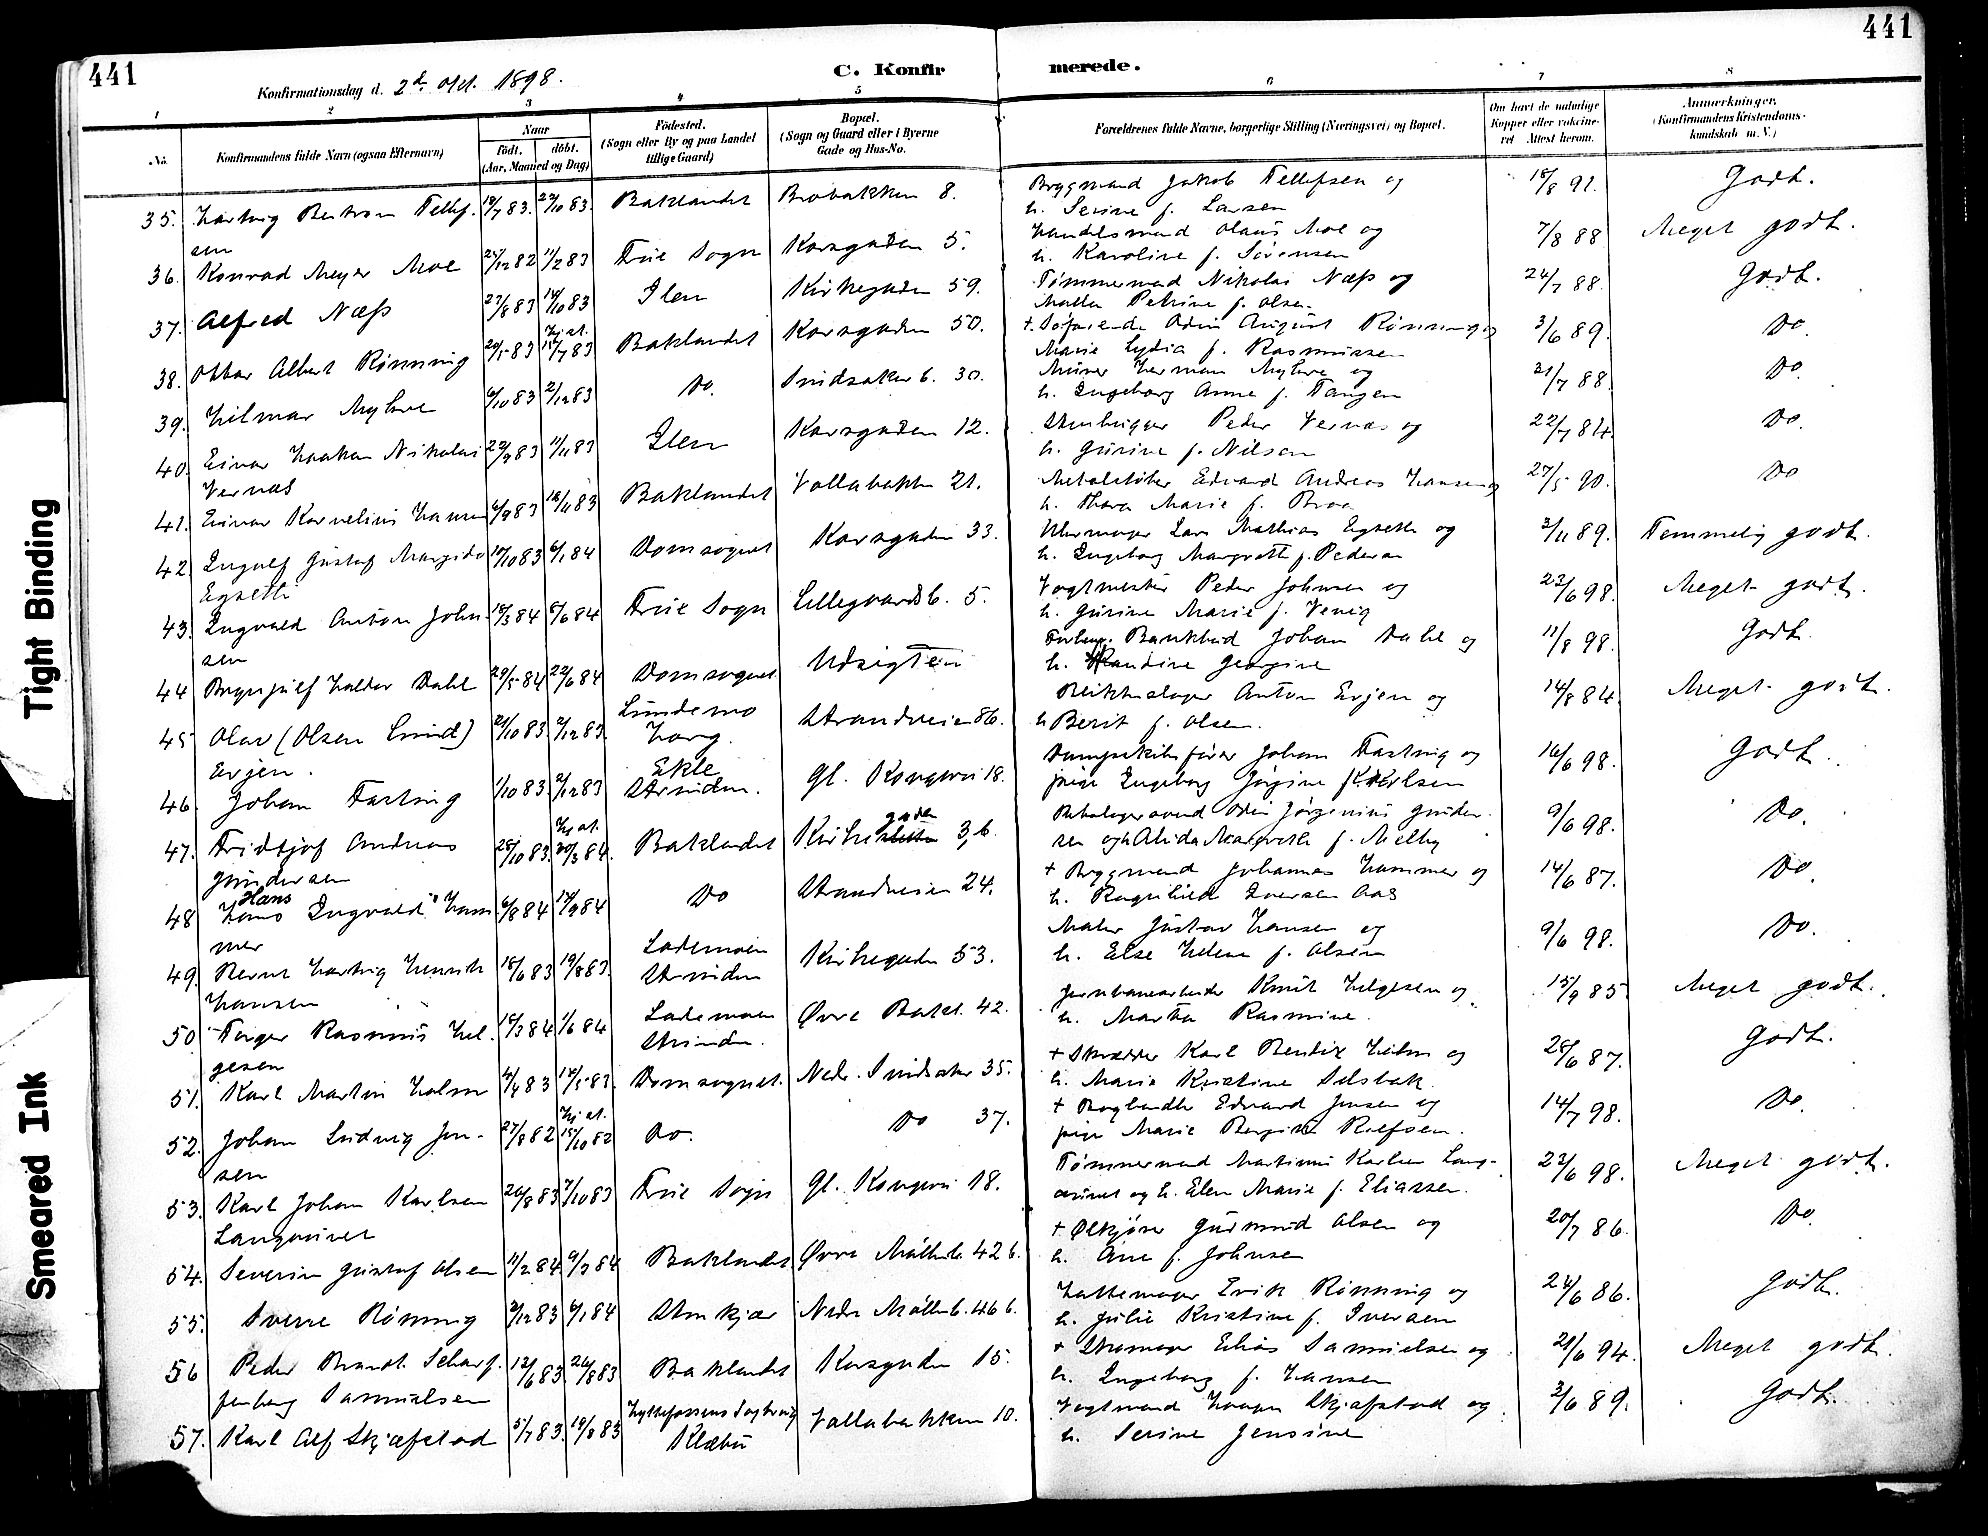 441
441
Konfirmationsdag d. 2d. Okt. 1898.
C. Konfir
merede.
1 2 3 4 5 6 7 8
No.
Konfirmandens fulde Navn (ogsaa Efternavn)
Naar
Födt. döbt.
(Aar, Maaned og Dag)
Födested.
(Sogn eller By og paa Landet
tillige Gaard)
Bopæl.
(Sogn og Gaard eller i Byerne
Gade og Hus-No.
Forældrenes fulde Navne, borgerlige Stilling (Næringsvei) og Bopæl.
Om havt de naturlige
Kopper eller vakcine-
ret Attest herom.
Anmerkninger.
(Konfirmandens Kristendoms-
kundskab m. V.)
35. Hartvig Bertram Tellef- 18/7 83. 22/10 83. Baklandet Brobakken 8. Brygmand Jakob Tellefsen og 18/8 91. Godt.
sen h. Serine f. Larsen
36. Konrad Meyer Moe 25/12 82 11/2 83 Frue Sogn Korsgaden 5. Handelsmand Olaus Moe og 7/8 88 Meget godt.
h. Karoline f. Sørensen
37. Alfred Næss 27/8 83 14/10 83 Ilen Kirkegaden 59. Tømmermand Nikolai Næss og 24/7 88. Godt.
Petrine f. Olsen
38. Ottar Albert Rønning 20/5 83 hj. at. 15/7 83 Baklandet Korsgaden 50. + Søfarende Odin August Rønning og 3/6 89. Do.
Marie Lydia f. Rasmussen
39. Hilmar Myhre 6/10 83 2/12 83 Do. Smedsaker b. 30. Murer Herman Myhre og 21/7 88. Do.
h. Ingeborg Anne f. Tangen
40. Einar Haakon Nikolai 22/9 83 11/11 83 Ilen Korsgaden 12. Stenhugger Peder Vernæs og 22/7 84. Do.
Vernæs h. Gurine f. Nilsen
41. Einar Kornelius Hansen 6/9 83 18/11 83 Baklandet Vollabakken 21. Metalstøber Edvard Andreas Hansen og 27/5 90. Do
h. Thora Marie f. Broa
42. Ingolf Gustaf 10/10 83 6/1 84 Domsognet Korsgaden 33. Uhrmager Lars Mathias Egseth og 3/11 89. Temmelig godt.
h. Ingeborg Margrethe f. Pedersen
43. Ingvald Anton John- 18/3 84 8/6 84 Frue Sogn Lillegaardsb. 5. Vogtmester Peder Johnsen og 23/6 98. Meget godt.
sen h. Gurine Marie f. Venig
44 Brynjulf Haldor Dahl 29/5 84 22/6 84 Domsognet Udsigten Bankbud Johan Dahl og 11/8 98. Godt.
h. Randine Georgine
45 Olav (Olsen Lund) 21/10 83. 2/12 83. Lundemo Strandveien 86. Blikkenslager Anton Evjen og 14/8 84. Meget godt.
Evjen. Horg. h Berit f. Olsen.
46. Johan Fasting 1/10 83. 2/12 83 Ekle Gl. Kongevei 18. Dampskibsfører Johan Fasting og 16/6 98. Godt.
Strinden. pige Ingeborg Jørgine f.
47. Fridtjof Andreas 28/10 83. hj. at. 30/3 84. Baklandet Kirkegaden 3,b. Odin Jørgenius Gunder- 9/6 98. Do.
Gundersen sen og h. Alida Margrethe f. Melby
48 Hans Ingvald Ham 6/8 84 14/9 84 Do Strandveien 24. + Brygmand Johannes Hammer og 14/6 87. Do.
mer h. Ragnhild Iversen Aas
49. Bernt Hartvig Henrik 18/6 83 19/8 83. Lademoen Kirkegaden 53. Maler Gustav Hansen og 9/6 98. Do.
Hansen Strinden h. Else Helene f. Olsen
50 Torger Rasmus Hel- 18/3 84 1/6 84 Lademoen Øvre Bakl. 42. Jernbanearbeider Knut Helgesen og 15/9 85 Meget godt.
gesen Strinden. h. Marta Rasmine.
51. Karl Martin Holm 4/4 83 14/5 83. Domsognet. Nedr. Smedsaker 35. + Skrædder Karl Bendix Holm og 28/6 87. Godt.
h. Marie Kristine Selsbak.
52. Johan Ludvig Jen- 27/8 82 hj. at. 15/10 82 Do. Do 37. + Boghandler Edvard Jensen og 14/7 98. Do.
sen pige Marie Bergitte Rolfsen.
53. Karl Johan Karlsen 26/8 83 7/10 83 Frue Sogn Gl. Kongevei 18. Tømmermand Martinus Karlsen Lang- 23/6 98. Meget godt.
Langørinet ørinet og h. Elen Marie f. Eliassen.
54. Severin Gustaf Olsen 11/2 84 9/3 84 Baklandet Øvre Møllenb. 42 b. + Ølkjører Gudmund Olsen og 20/7 86. Do
h. Ane f. Johnsen
55. Sverre Rønning 2/12 83 6/1 84 Stenkjær Nedre Møllenb. 46 b. Hattemager Erik Rønning og 24/6 86. Godt.
h. Julie Kristine f. Iversen
56 Peder Brandt Scharf- 12/6 83 26/8 83 Baklandet Korsgaden 15. + Skomager Elias Samuelsen og 21/6 94. Meget godt.
fenberg Samuelsen h. Ingeborg f. Hansen
57. Karl Alf Skjefstad 5/7 83. 19/8 83 Hyttefossens Sagbrug Vollabakken 10. Vogtmand Haagen Skjefstad og 3/6 89. Godt.
Klæbu h. Serine Jensine
Tight Binding
Smeared Ink